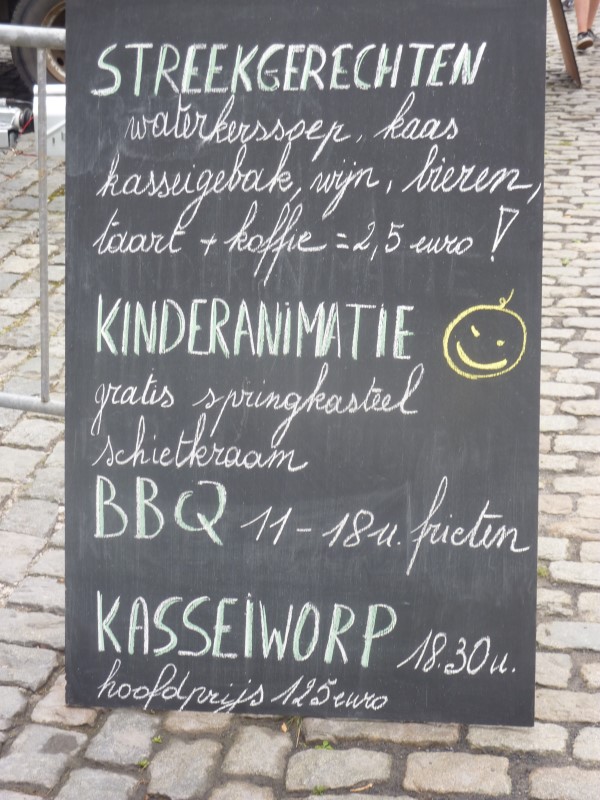 STREEKGERECHTEN
waterkerssoep, kaas
kasseigebak, wijn, bieren,
taart + koffie = 2,5 euro !
KINDERANIMATIE
gratis springkasteel
schietkraam
BBQ 11-18u. frieten
KASSEIWORP 18.30u.
hoofdprijs 125 euro